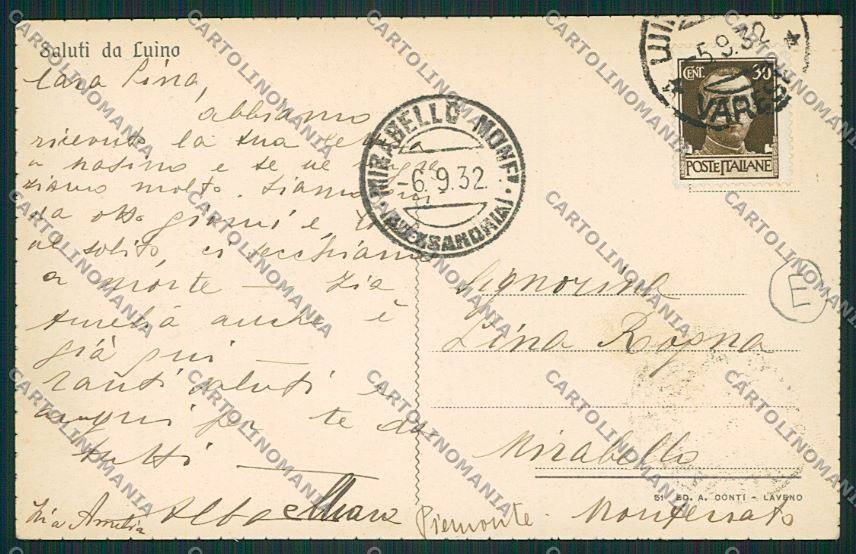 Saluti da Luino
Cara Pina,
abbiamo
ricevuto la tua
a Nasino e se ne
ziamo molto. Siamo qui
da otto giorni e
al solito, ci secchiamo
a morte — Zia
Amelia anche è
già qui —
Tanti saluti e
auguri per te da
tutti —
Zia Amelia Alba
MIRABELLO MONF.
-6.9.32
(ALESSANDRIA)
LUINO
5.9.32
VARESE
CENT. 30
POSTE ITALIANE
Signorina
Pina Rogna
Mirabello
Monferrato
Piemonte
51 ED. A. CONTI - LAVENO
CARTOLINOMANIA